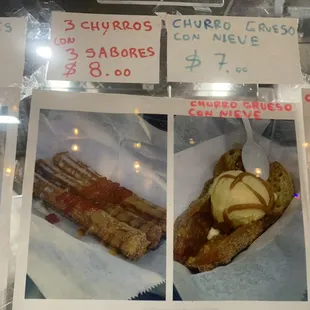 3 CHURROS
CON
3 SABORES
$ 8.00
CHURRO GRUESO
CON NIEVE
$ 7.00
CHURRO GRUESO
CON NIEVE